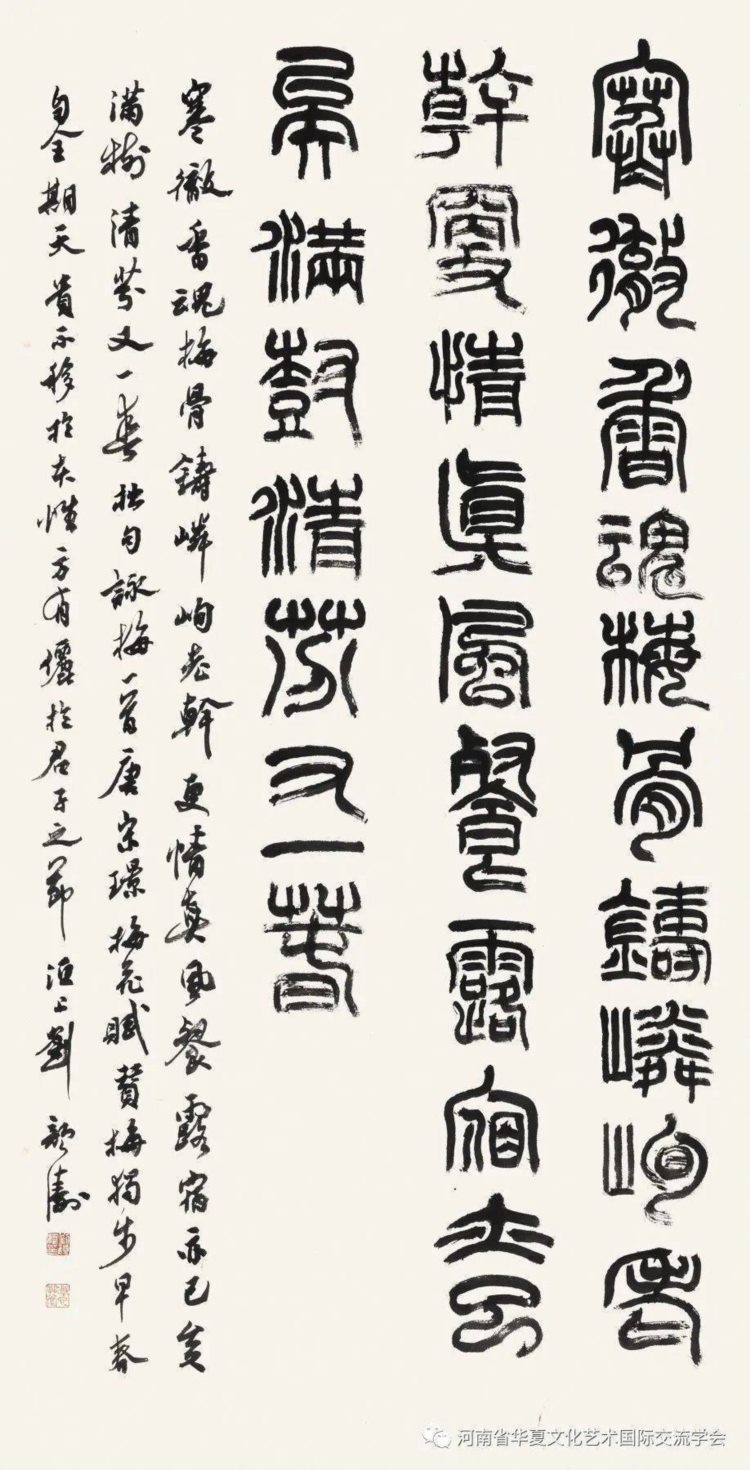 寒徹香魂梅骨鑄嶙峋老
幹更情真風餐露宿亦已
矣滿樹清芬又一春
寒徹香魂梅骨鑄嶙峋老幹更情真風餐露宿亦已矣
滿樹清芬又一春拙句詠梅一首唐宋璟梅花賦贊梅獨步早春
自全期天貴不移於本性方有儷於君子之節洹上劉顏濤
河南省华夏文化艺术国际交流学会